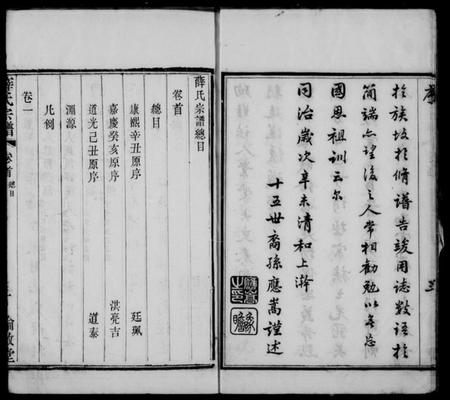 於族故於脩譜告竣用誌數語於
簡端亦望後之人常相勸勉以無忘
國恩祖訓云尔
同治歲次辛未清和上澣
十五世裔孫應嵩謹述
薛氏宗譜總目
卷首
總目
康熙辛丑原序 廷珮
嘉慶癸亥原序 洪亮吉
道光己丑原序 道泰
淵源
凡例
卷一
薛氏宗譜 卷首 總目